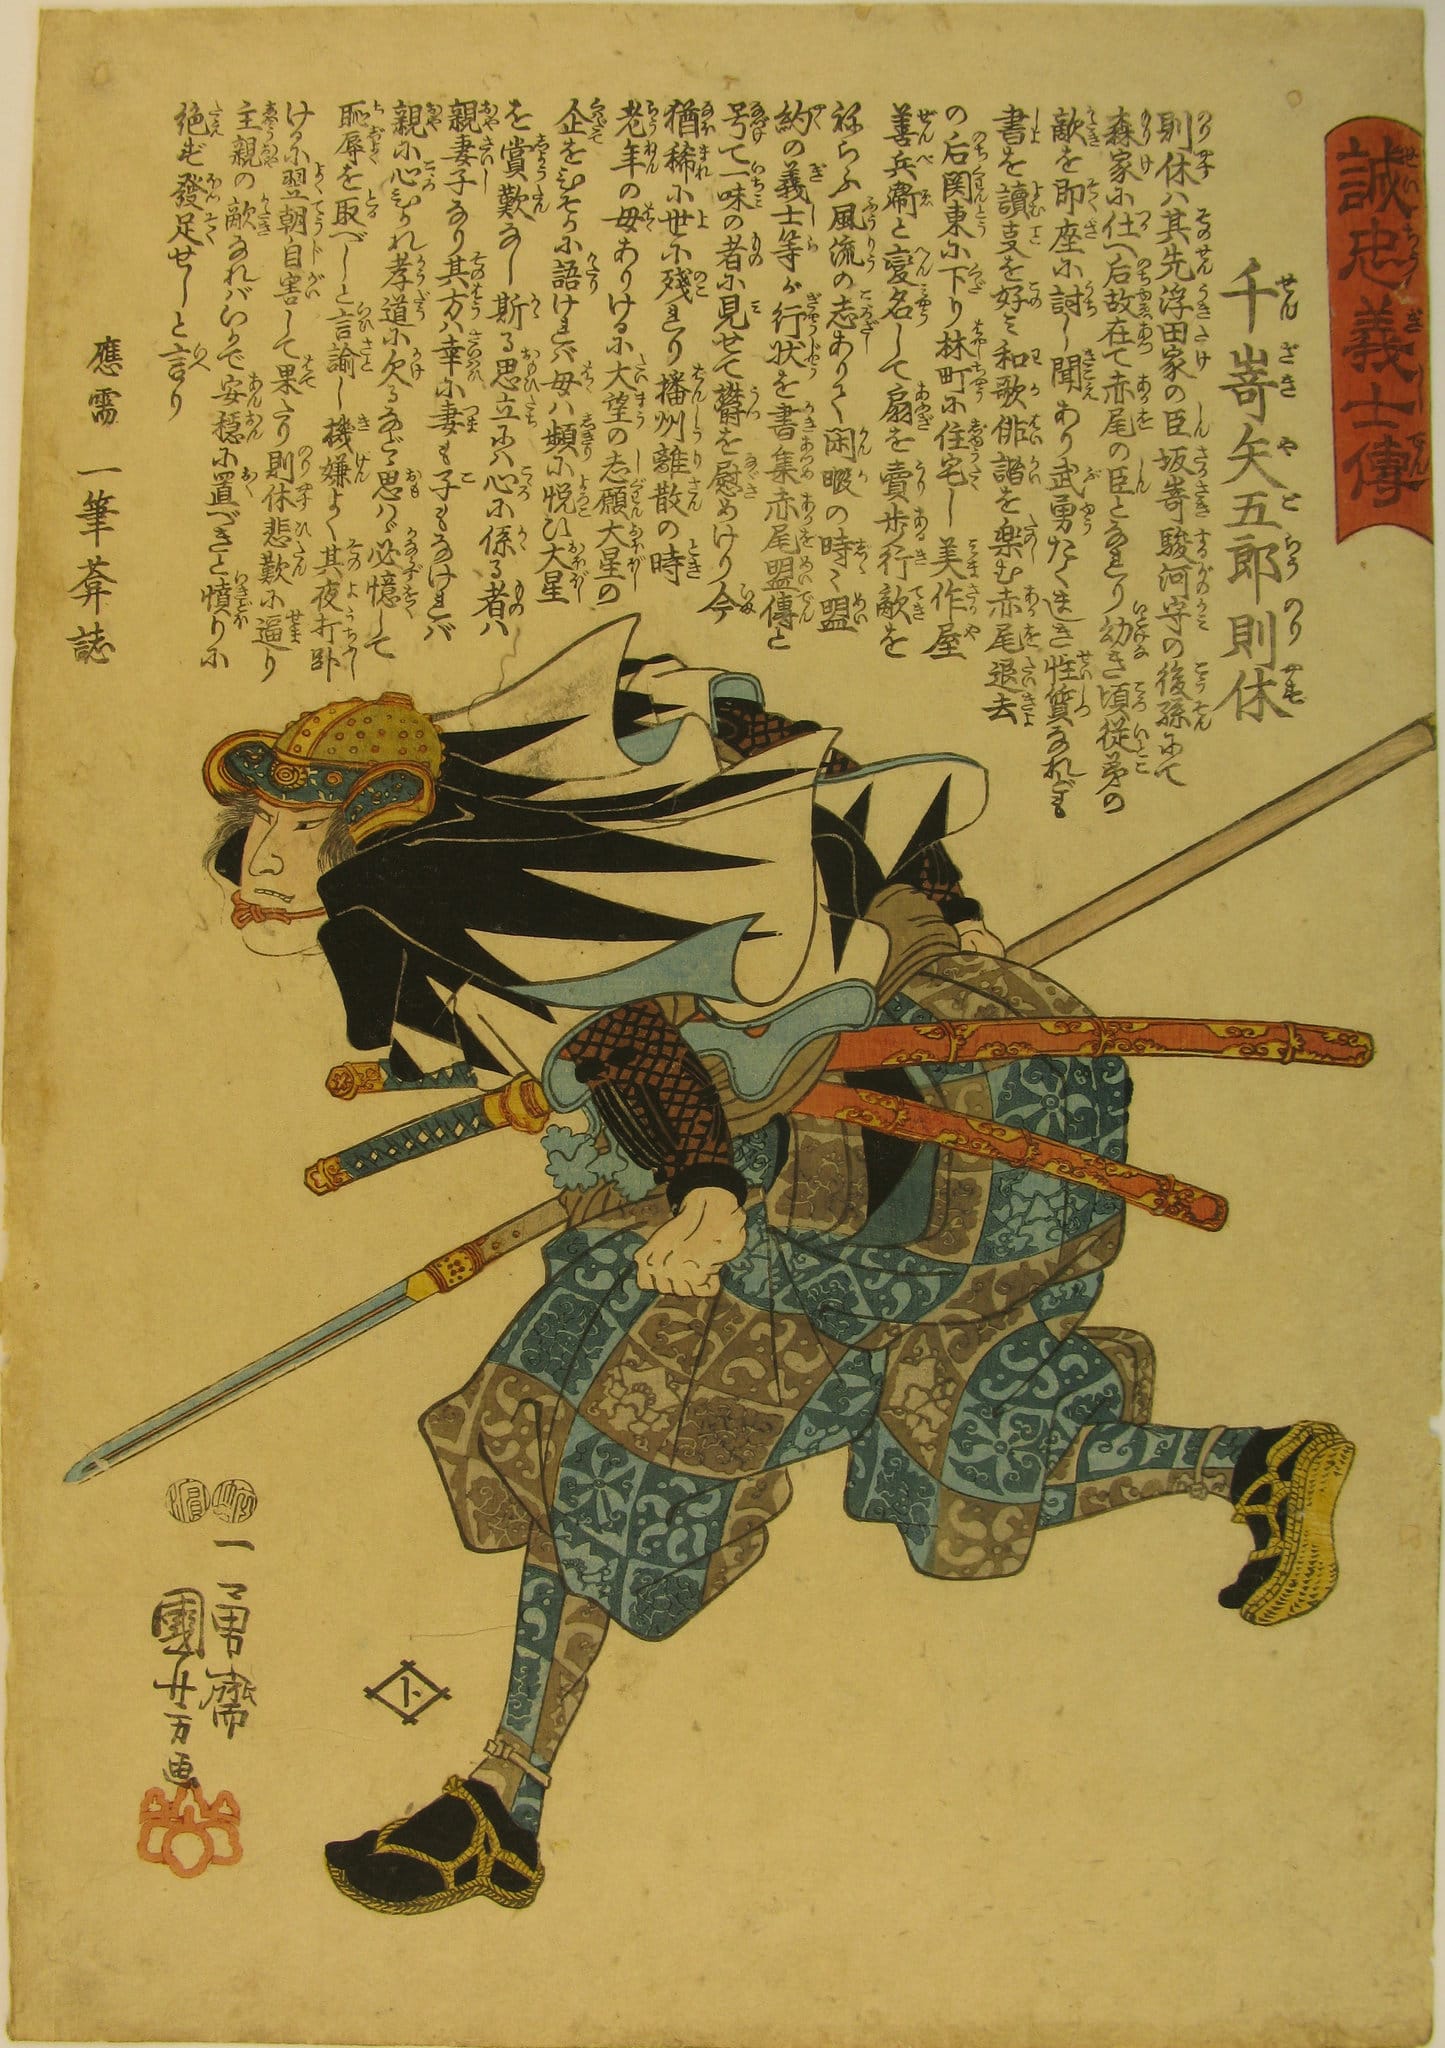 誠忠義士傳
千嵜矢五郎則休
則休ハ其先浮田家の臣坂嵜駿河守の後孫にて
森家に仕へ后故在て赤尾の臣となれり幼き頃従弟の
敵を即座に討し聞あり武勇たくましき性質なれども
書を讀支を好ミ和歌俳諧を楽む赤尾退去
の后関東に下り林町に住宅し美作屋
善兵衞と變名して扇を賣歩行敵を
ねらふ風流の志ありて閑暇の時〻盟
約の義士等が行状を書集赤尾盟傳と
号て一味の者に見せて欝を慰めけり今
猶稀に世に残れり播州離散の時
老年の母ありけるに大望の志願大星の
企をひそかに語けれバ母ハ頻に悦び大星
を賞歎なし斯る思立にハ心に係る者ハ
親妻子なり其方ハ幸に妻も子もなけれバ
親に心ひかれ孝道に欠るなど思ハヾ必憶して
恥辱を取べしと言諭し機嫌よく其夜打臥
けるに翌朝自害して果たり則休悲歎に逼り
主親の敵なれバいかで安穏に置べきと憤りに
絶ず發足せしと言り
應需 一筆菴誌
一勇齋
國芳画
ト